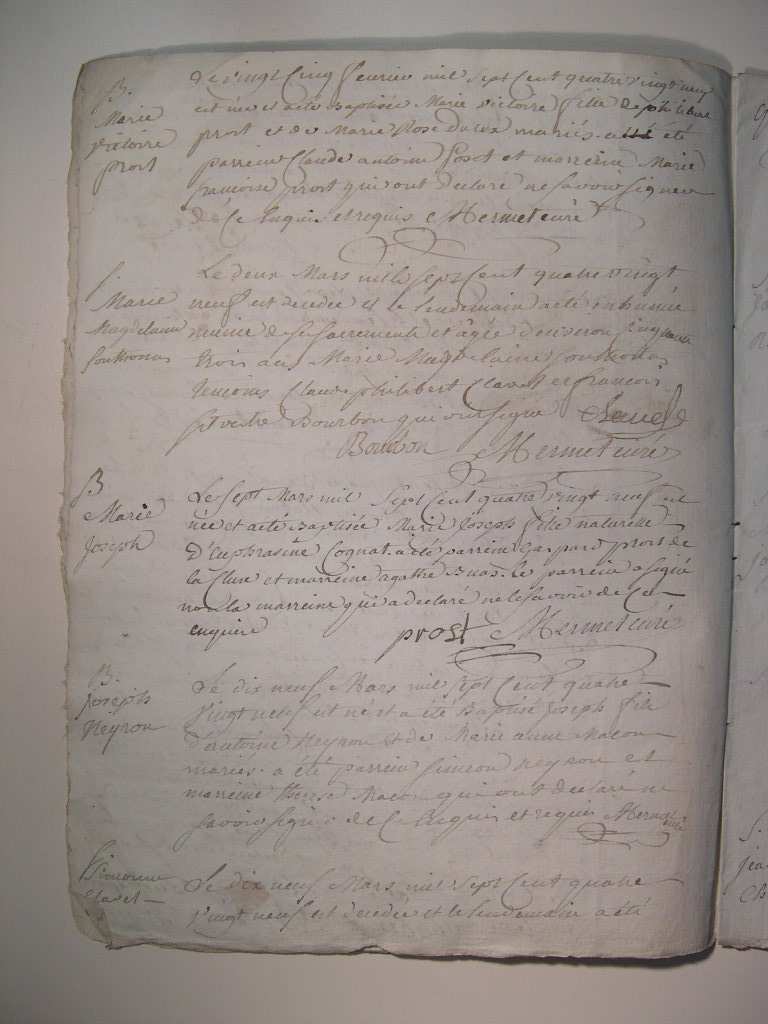 B.
Marie
victoire
prost
Le vingt Cinq fevrier mil Sept Cent quatre vingt neuf
est née et a été Baptisée Marie victoire fille de philibert
prost et de Marie Rose mariés. a été
parrein Claude antoine et marreine Marie
francoise prost qui ont declaré ne savoir signer
de Ce Enquis et requis Mermet curé
S.
Marie
Magdelaine
Le deux Mars mille Sept Cent quatre vingt
neuf est decedée et le lendemain a été inhumée
munie de ses sacrements et agée d'environ Cinquante
trois ans Marie Magdelaine
temoins Claude philibert Clavel et francois
silvestre Bourbon qui ont signé Clavel
Bourbon Mermet curé
B
Marie
Joseph
Le Sept Mars mil Sept Cent quatre vingt neuf est
née et a été Baptisée Marie Joseph fille naturelle
D'Euphrasine Cognat. a été parrein Gaspard prost de
la Cluse et marreine agathe Le parrein a signé
non la marreine qui a declaré ne le savoir de Ce
enquise prost Mermet curé
B.
Joseph
Neyron
Le dix neuf Mars mil Sept Cent quatre
vingt neuf est né et a été Baptisé Joseph fils
d'antoine Neyron et de Marie anne Macon
mariés. a été parrein Simeon neyron et
marreine therese Macon qui ont declaré ne
savoir signer de Ce Enquis et requis Mermet curé
Simonne
Clavel
Le dix neuf Mars mil Sept Cent quatre
vingt neuf est decedée et le lendemain a été